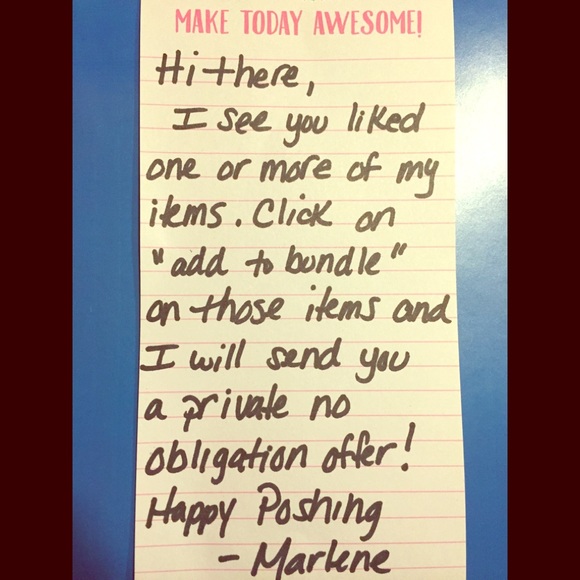 MAKE TODAY AWESOME!
Hi there,
I see you liked
one or more of my
items. Click on
"add to bundle"
on those items and
I will send you
a private no
obligation offer!
Happy Poshing
- Marlene